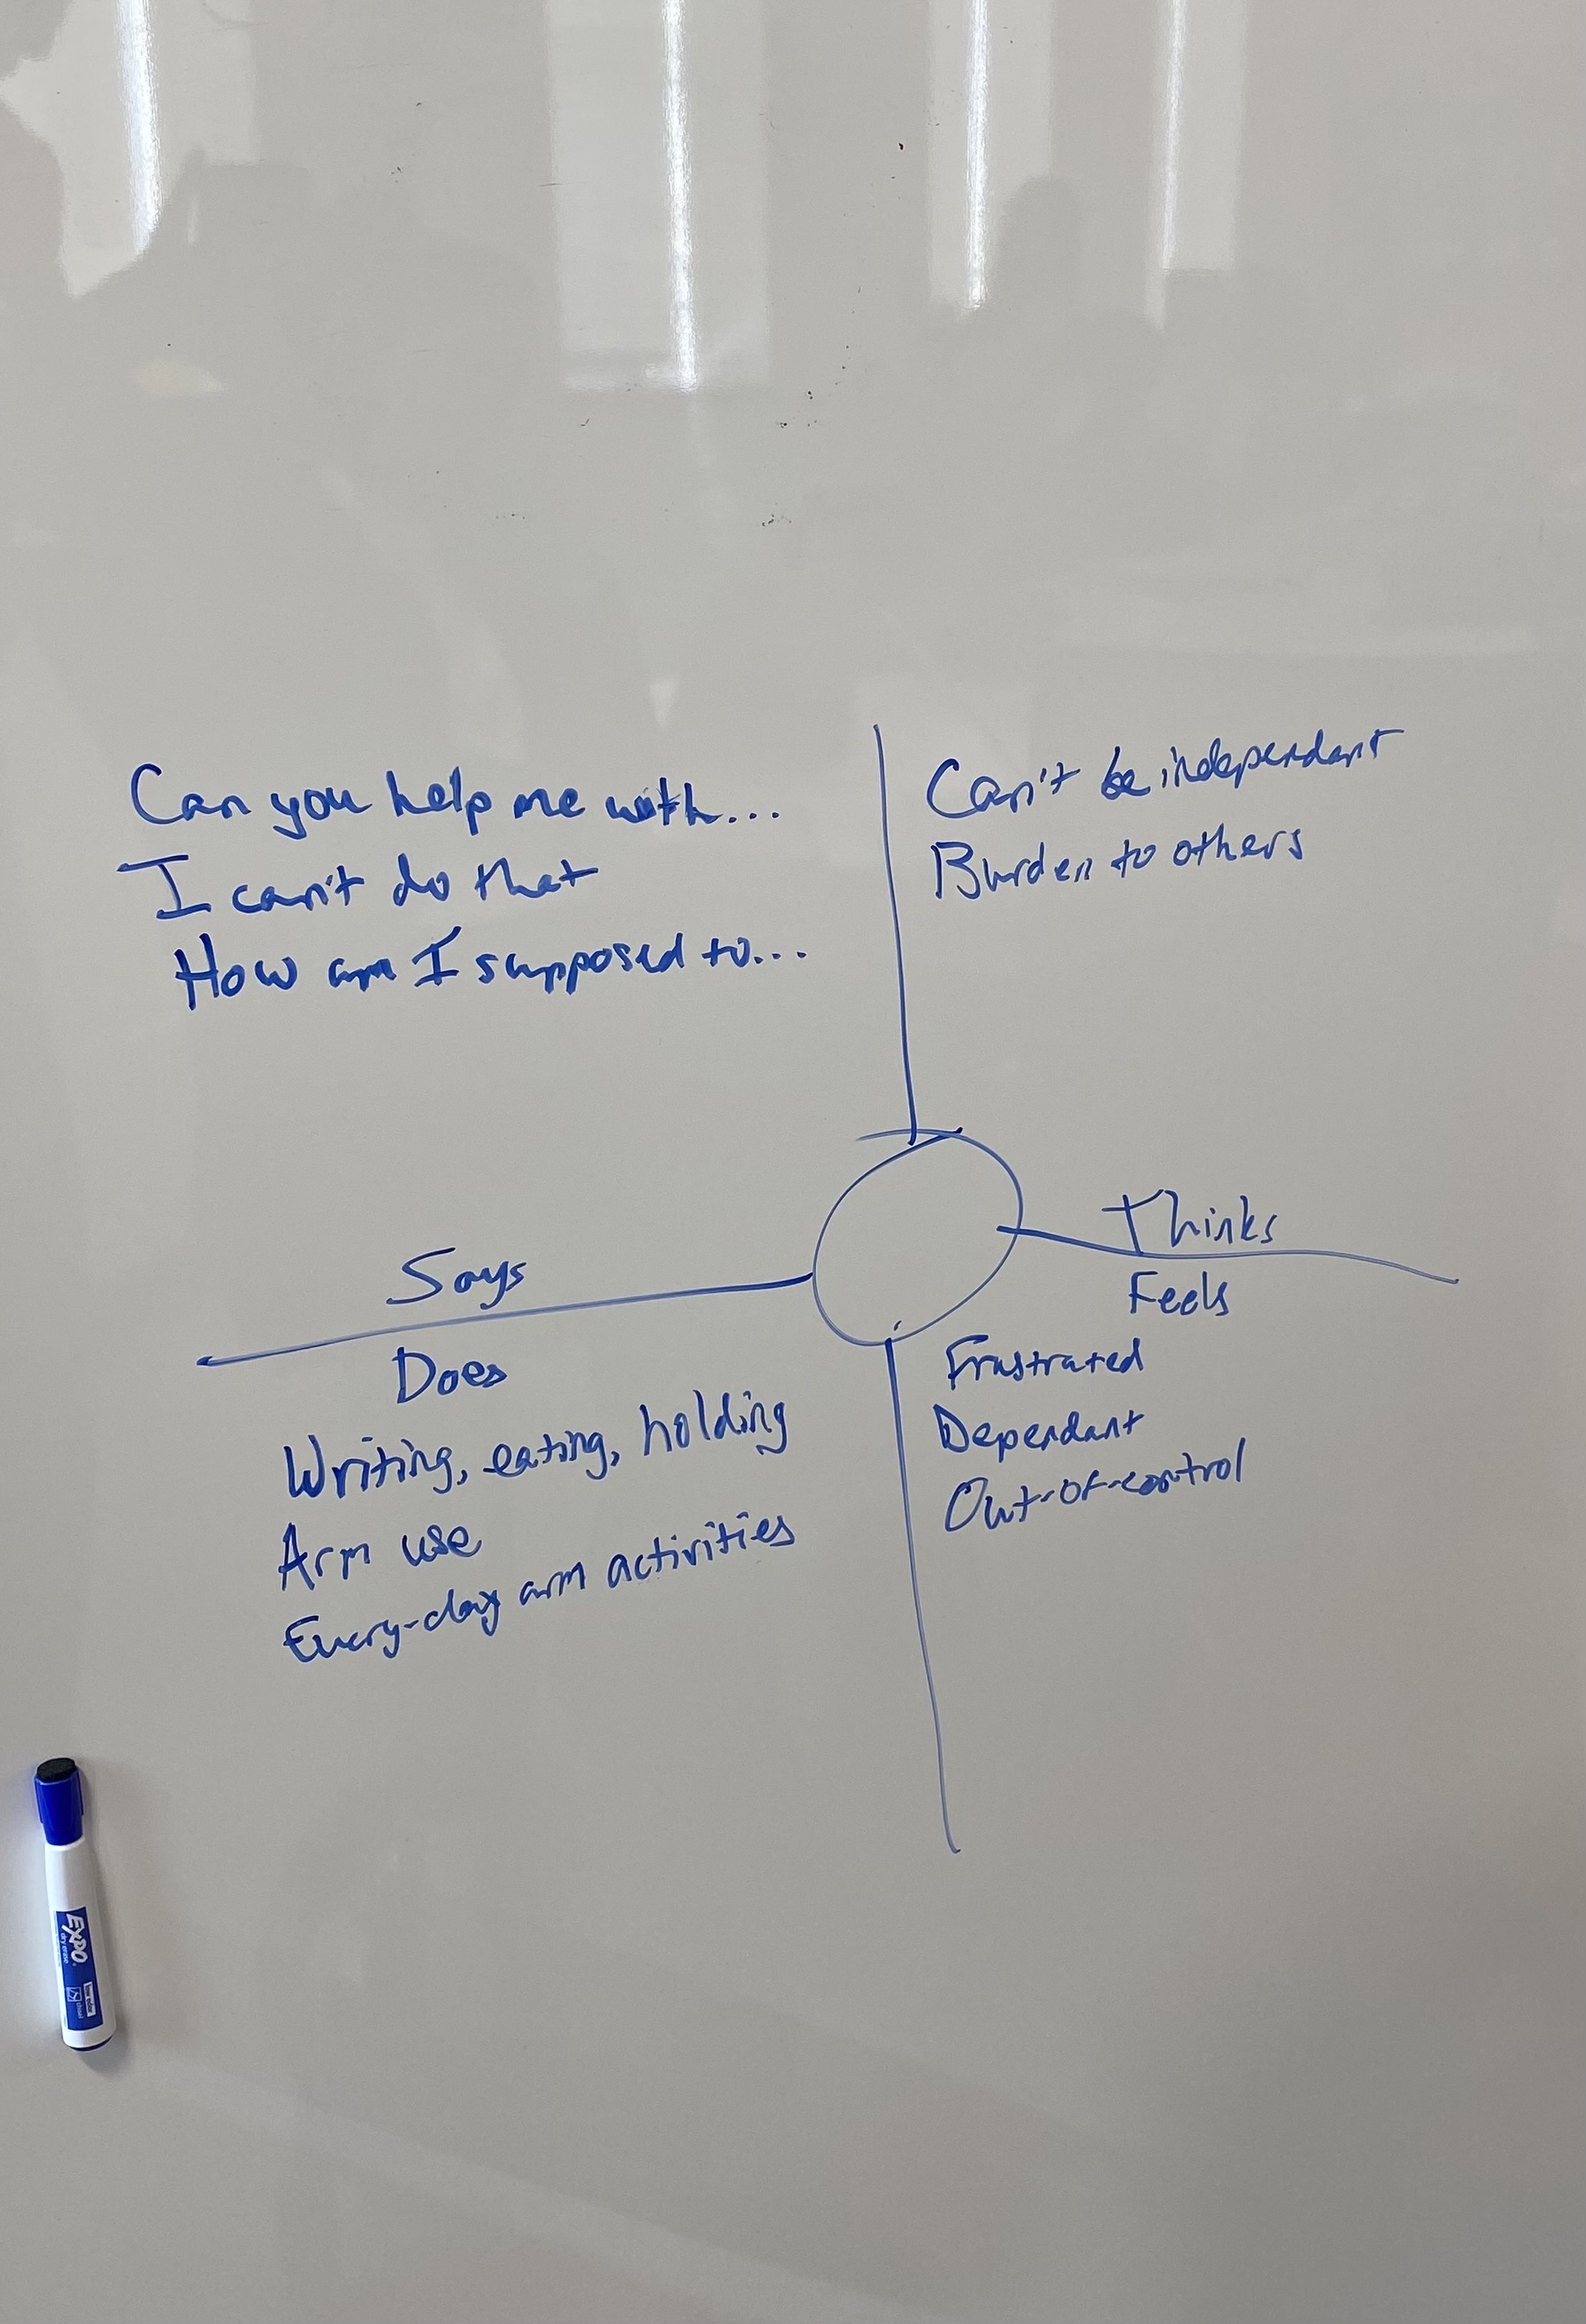 Can you help me with...
I can't do that
How am I supposed to...
Says
Can't be independant
Burden to others
Thinks
Does
Writing, eating, holding
Arm use
Every-day arm activities
Feels
Frustrated
Dependant
Out-of-control
EXPO
dry erase
chisel